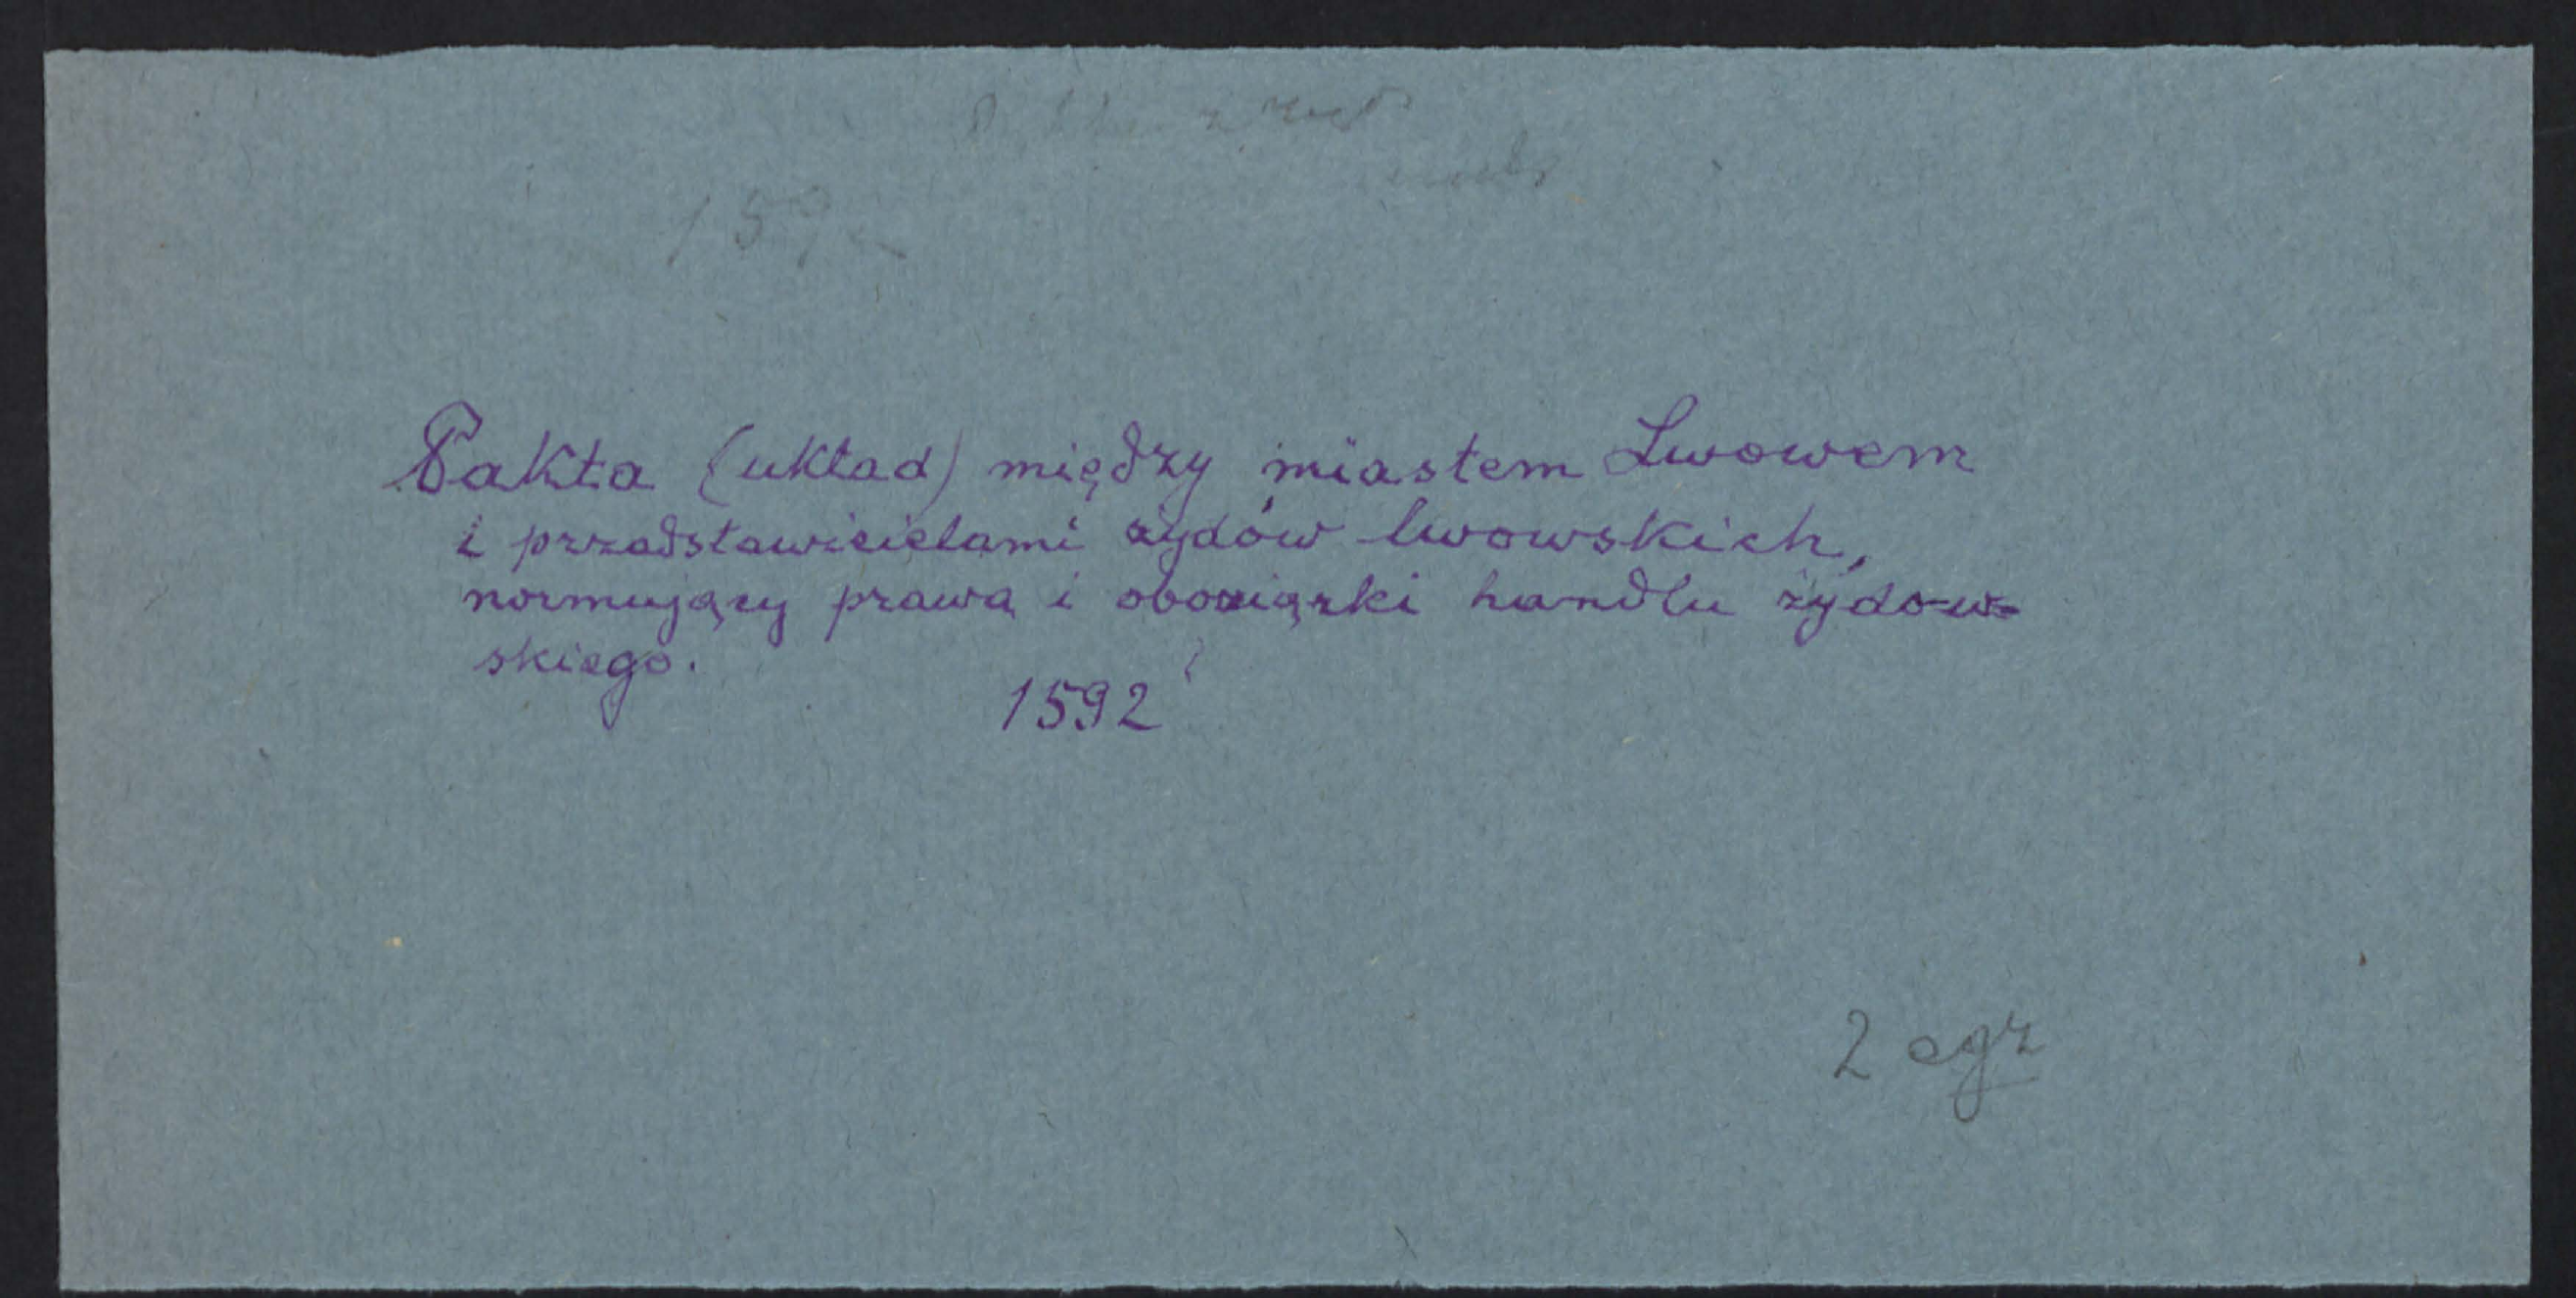 159
Pakta (układ) między miastem Lwowem
i przedstawicielami żydów lwowskich,
normujący prawa i obowiązki handlu żydow-
skiego.
1592
2 egz